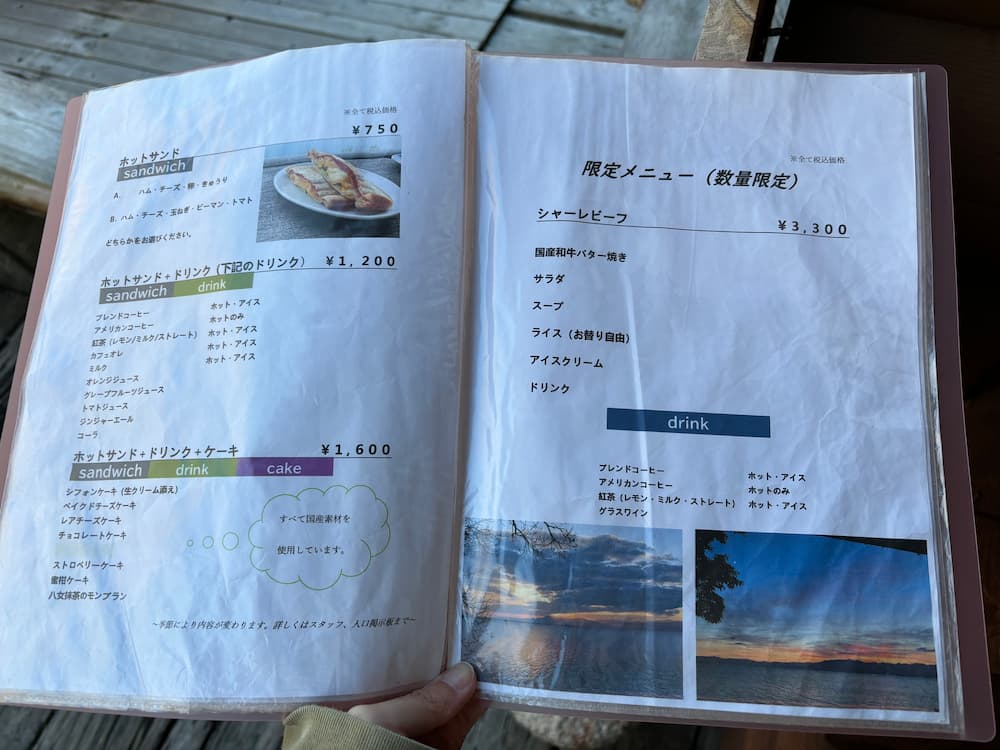 ※全て税込価格
¥750
ホットサンド
sandwich
A. ハム・チーズ・卵・きゅうり
B. ハム・チーズ・玉ねぎ・ピーマン・トマト
どちらかをお選びください。
ホットサンド+ドリンク(下記のドリンク) ¥1,200
sandwich drink
ブレンドコーヒー ホット・アイス
アメリカンコーヒー ホットのみ
紅茶(レモン/ミルク/ストレート) ホット・アイス
カフェオレ ホット・アイス
ミルク ホット・アイス
オレンジジュース
グレープフルーツジュース
トマトジュース
ジンジャーエール
コーラ
ホットサンド+ドリンク+ケーキ ¥1,600
sandwich drink cake
シフォンケーキ(生クリーム添え)
ベイクドチーズケーキ
レアチーズケーキ
チョコレートケーキ
ストロベリーケーキ
蜜柑ケーキ
八女抹茶のモンブラン
すべて国産素材を
使用しています。
~季節により内容が変わります。詳しくはスタッフ、入口掲示板まで~
※全て税込価格
限定メニュー(数量限定)
シャーレビーフ ¥3,300
国産和牛バター焼き
サラダ
スープ
ライス(お替り自由)
アイスクリーム
ドリンク
drink
ブレンドコーヒー ホット・アイス
アメリカンコーヒー ホットのみ
紅茶(レモン・ミルク・ストレート) ホット・アイス
グラスワイン